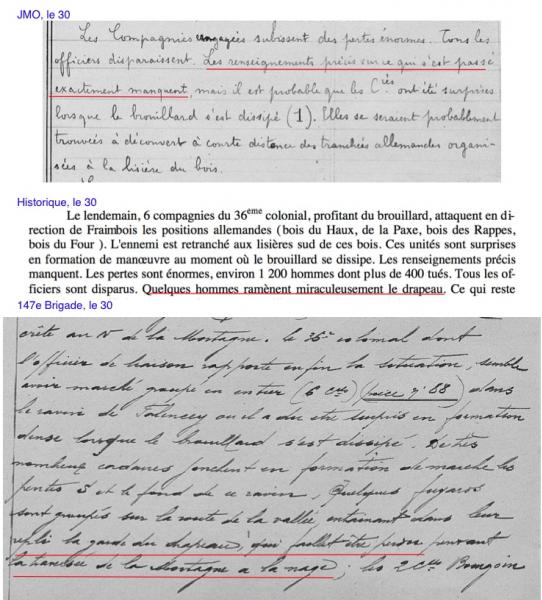 JMO, le 30
Les Compagnies engagées subissent des pertes énormes. Tous les
officiers disparaissent. Les renseignements précis sur ce qui s'est passé
exactement manquent, mais il est probable que les Cies ont été surprises
lorsque le brouillard s'est dissipé (1). Elles se seraient probablement
trouvées à découvert à courte distance des tranchées allemandes organi-
sées à la lisière du bois.
Historique, le 30
Le lendemain, 6 compagnies du 36ème colonial, profitant du brouillard, attaquent en di-
rection de Fraimbois les positions allemandes (bois du Haux, de la Paxe, bois des Rappes,
bois du Four ). L'ennemi est retranché aux lisières sud de ces bois. Ces unités sont surprises
en formation de manœuvre au moment où le brouillard se dissipe. Les renseignements précis
manquent. Les pertes sont énormes, environ 1 200 hommes dont plus de 400 tués. Tous les of-
ficiers sont disparus. Quelques hommes ramènent miraculeusement le drapeau. Ce qui reste
147e Brigade, le 30
crête au N de la Mortagne. le 36e colonial dont
l'officier de liaison rapporte enfin la situation, semble
avoir marché groupé en entier (6 Cies) (pièce n° 88) dans
le ravin de où il a dû être surpris en formation
dense lorsque le brouillard s'est dissipé. De très
nombreux cadavres jonchent en formation de marche les
pentes S et le fond de ce ravin. Quelques fuyards
sont groupés sur la route de la vallée, entrainant dans leur
repli la garde du drapeau, qui faillit être perdu pendant
la traversée de la Mortagne à la nage; les 2 Cies Bourgoin